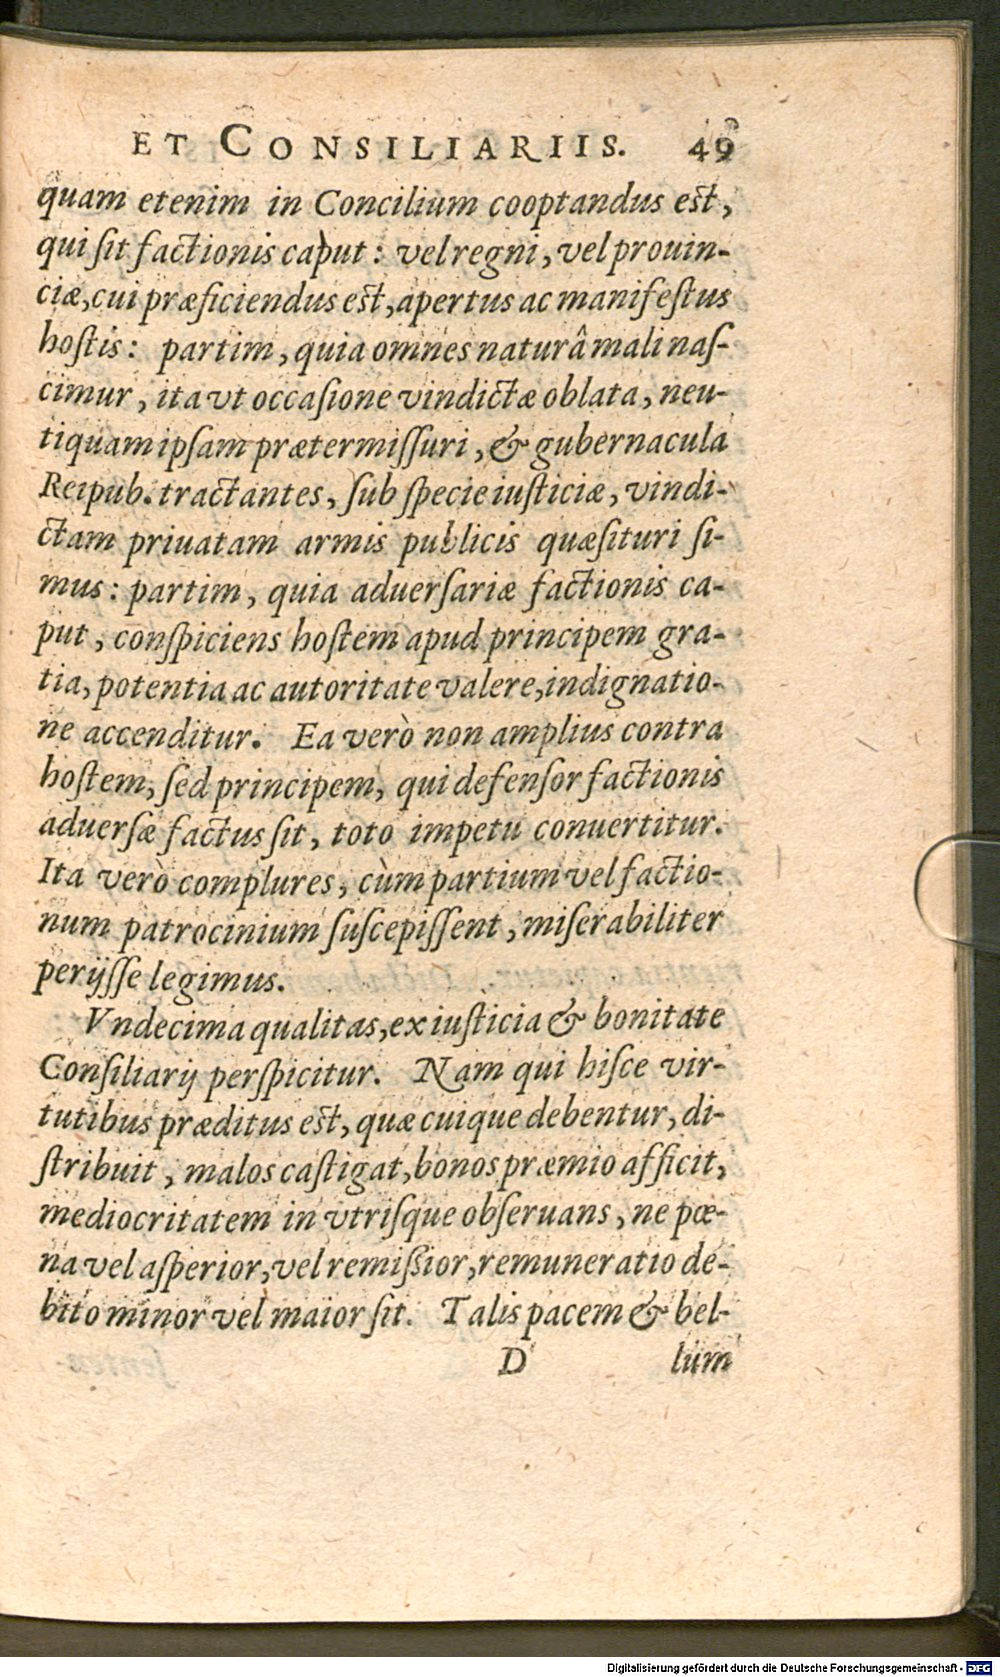 ET CONSILIARIIS. 49
quam etenim in Concilium cooptandus est,
qui ſit factionis caput: vel regni, vel prouin-
ciæ, cui præficiendus est, apertus ac manifeſtus
hoſtis: partim, quia omnes naturâ mali naſ-
cimur, ita vt occaſione vindictæ oblata, neu-
tiquam ipſam prætermiſſuri, & gubernacula
Reipub. tractantes, ſub ſpecie iuſticiæ, vindi-
ctam priuatam armis publicis quæſituri ſi-
mus: partim, quia aduerſariæ factionis ca-
put, conſpiciens hoſtem apud principem gra-
tia, potentia ac autoritate valere, indignatio-
ne accenditur. Ea verò non amplius contra
hoſtem, ſed principem, qui defenſor factionis
aduerſæ factus ſit, toto impetu conuertitur.
Ita verò complures, cùm partium vel factio-
num patrocinium ſuſcepiſſent, miſerabiliter
perijſſe legimus.
Vndecima qualitas, ex iuſticia & bonitate
Conſiliarij perſpicitur. Nam qui hiſce vir-
tutibus præditus est, quæ cuique debentur, di-
ſtribuit, malos caſtigat, bonos præmio afficit,
mediocritatem in vtriſque obſeruans, ne pœ-
na vel aſperior, vel remiſsior, remuneratio de-
bito minor vel maior ſit. Talis pacem & bel-
D lum
Digitalisierung gefördert durch die Deutsche Forschungsgemeinschaft - DFG